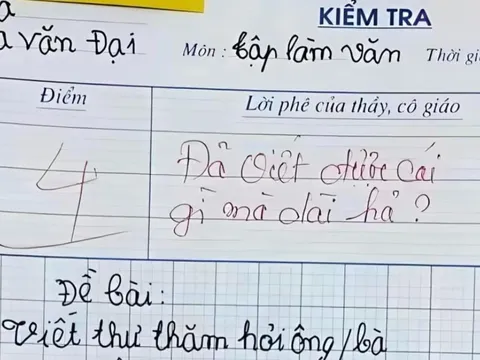 KIỂM TRA
văn Đại
Môn : tập làm văn Thời gi
Điểm
Lời phê của thầy, cô giáo
4
Đã viết được cái
gì mà dài hả ?
Đề bài:
viết thư thăm hỏi ông/bà